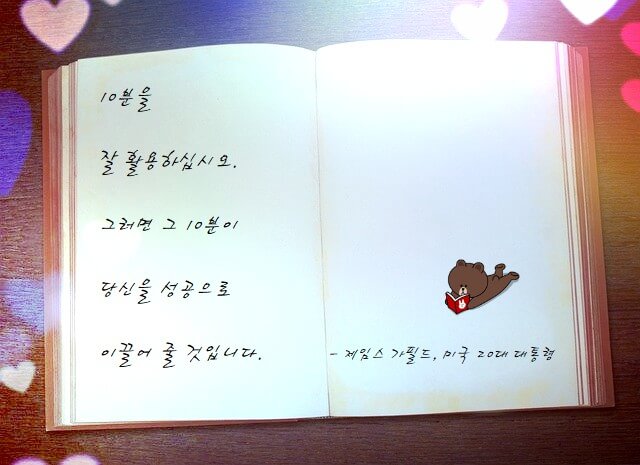 10분을
잘 활용하십시오.
그러면 그 10분이
당신을 성공으로
이끌어 줄 것입니다.
- 제임스 가필드, 미국 20대 대통령